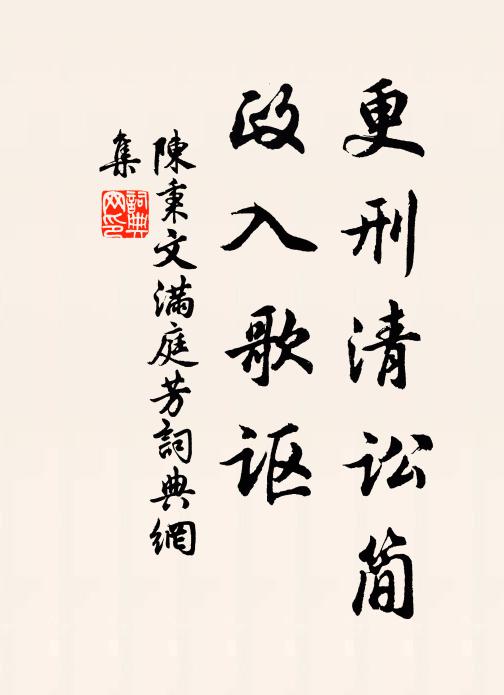 更刑清讼简
政入歌讴
陳秉文满庭芳詞典網
集
詞典
网印